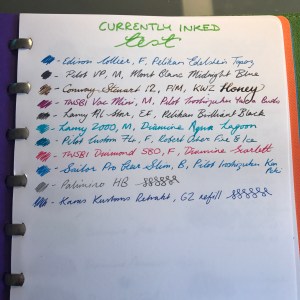 CURRENTLY INKED
test
- Edison Collier, F, Pelikan Edelstein Topaz
- Pilot VP, M, Mont Blanc Midnight Blue
- Conway Stewart 12, F/M, KWZ Honey
- TWSBI Vac Mini, M, Pilot Iroshizuku
- Lamy AL-Star, EF, Pelikan Brilliant Black
- Lamy 2000, M, Diamine Aqua Lagoon
- Pilot Custom 74, F, Robert Oster Fire & Ice
- TWSBI Diamond 580, F, Diamine Scarlett
- Sailor Pro Gear Slim, B, Pilot Iroshizuku Kon Peki
- Palomino HB
- Karas Kustoms Retrakt, G2 refill